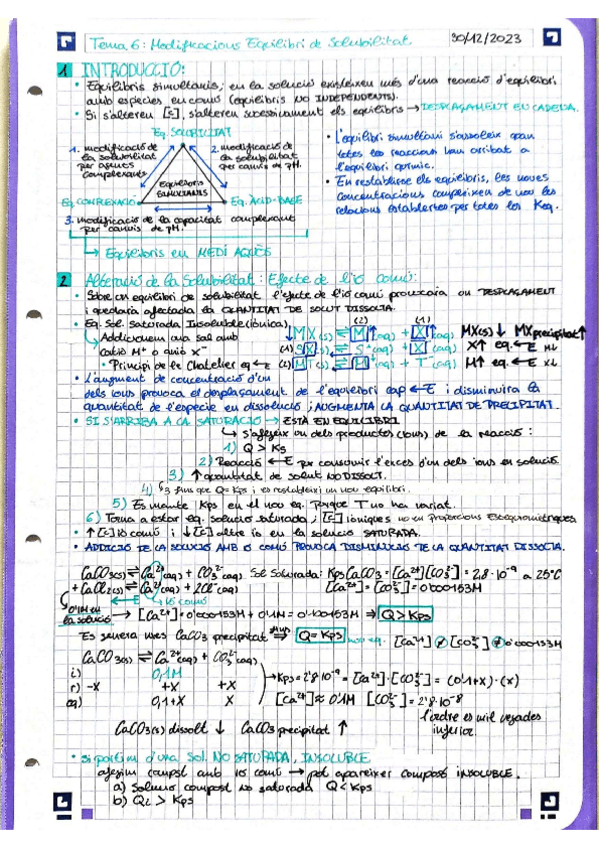 Tema 6: Modificacions Equilibri de Solubilitat. 30/12/2023
1 INTRODUCCIÓ:
• Equilibris simultanis; en la solució existeixen més d'una reacció d'equilibri
amb espècies en comú (equilibris NO INDEPENDENTS).
• Si s'altereu [c], s'altereu successivament els equilibris → DESPLAÇAMENT EN CADENA.
Eq. SOLUBILITAT
1. modificació de la solubilitat per agents complexants
2. modificació de la solubilitat per canvis de pH.
Equilibris SIMULTANIS
Eq. COMPLEXACIÓ
Eq. ÀCID-BASE
3. modificació de la capacitat complexant
per canvis de pH.
→ Equilibris en MEDI AQUÓS
• L'equilibri simultani s'assoleix quan
totes les reaccions han arribat a
l'equilibri químic.
• En restablirse els equilibris, les noves
concentracions compleixen de nou les
relacions establertes per totes les Keq.
2 Alteració de la Solubilitat: Efecte de l'ió comú:
• Sobre un equilibri de solubilitat l'efecte de l'ió comú provocaria un DESPLAÇAMENT
i quedaria afectada la QUANTITAT DE SOLUT DISSOLTA.
• Eq. Sol. saturada Insoluble (iònica)
↳ Addicionem una sal amb
catió M⁺ o anió X⁻
• Principi de Le Chatelier eq ← E
↓ MX(s) ⇌ M⁺(aq) + X⁻(aq) MX(s) ↓ MX precipitat ↑
(1) SX(s) ⇌ S⁺(aq) + X⁻(aq) X↑ eq. ← E M↓
(2) MT(s) ⇌ M⁺(aq) + T⁻(aq) M↑ eq. ← E X↓
• L'augment de concentració d'un
dels ions provoca el desplaçament de l'equilibri cap ← E i disminuirà la
quantitat de l'espècie en dissolució; AUGMENTA LA QUANTITAT DE PRECIPITAT.
• SI S'ARRIBA A LA SATURACIÓ → ESTÀ EN EQUILIBRI
↳ s'afegeix un dels productes (ions) de la reacció:
1) Q > Ks
2) Reacció ← E per consumir l'excés d'un dels ions en solució.
3) ↑ quantitat de solut NO DISSOLT.
4) ↳ fins que Q = Kps i es restableixi un nou equilibri.
5) Es manté Kps en el nou eq. Perquè T no ha variat.
6) Torna a estar eq. solució saturada; [c] iòniques no en proporcions Estequiomètriques
• ↑ [c] ió comú i ↓ [c] altre ió en la solució SATURADA.
• ADDICIÓ DE LA SOLUCIÓ AMB IÓ COMÚ PROVOCA DISMINUCIÓ DE LA QUANTITAT DISSOLTA.
CaCO3(s) ⇌ Ca²⁺(aq) + CO3²⁻(aq) Sol Saturada: Kps CaCO3 = [Ca²⁺][CO3²⁻] = 2,8·10⁻⁹ a 25°C
+ CaCl2(s) ⇌ Ca²⁺(aq) + 2Cl⁻(aq) [Ca²⁺] = [CO3²⁻] = 0'000153M
← E ió comú
0'1M en la solució → [Ca²⁺] = 0'000153M + 0'1M = 0'100153M ⇒ Q > Kps
Es generà més CaCO3 precipitat ⇒ Q = Kps nou eq. [Ca²⁺] ≠ [CO3²⁻] ≠ 0'000153M
CaCO3(s) ⇌ Ca²⁺(aq) + CO3²⁻(aq)
i) 0,1M
r) -X +X +X
eq) 0,1+X X
→ Kps = 2'8·10⁻⁹ = [Ca²⁺]·[CO3²⁻] = (0'1+x)·(x)
[Ca²⁺] ≈ 0'1M [CO3²⁻] = 2'8·10⁻⁸
l'ordre es mil vegades
inferior.
CaCO3(s) dissolt ↓ CaCO3 precipitat ↑
• si partim d'una Sol. NO SATURADA, INSOLUBLE
afegim compost amb ió comú → pot aparèixer compost INSOLUBLE.
a) Solució compost no saturada Q < Kps
b) Q > Kps